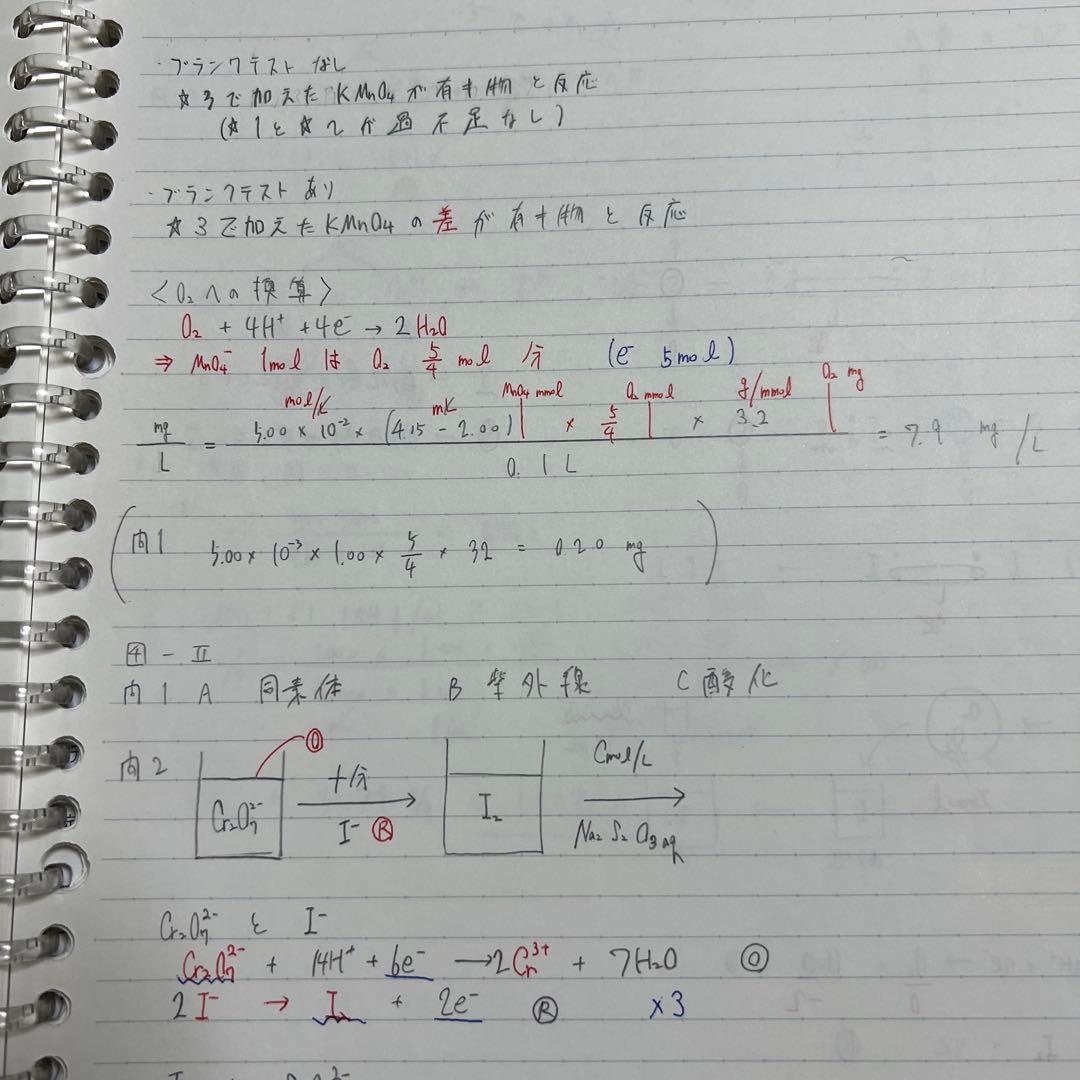 ・ブランクテスト なし
☆3で加えた KMnO4が有機物と反応
(☆1と☆2が過不足なし)
・ブランクテスト あり
☆3で加えたKMnO4の差が有機物と反応
〈O2への換算〉
O2 + 4H+ + 4e- → 2H2O
⇒ MnO4- 1molは O2 5/4 mol分 (e- 5mol)
mol/L mL MnO4 mmol O2 mmol g/mmol O2 mg
mg/L = 5.00×10-2×(4.15-2.00) × 5/4 × 32 / 0.1L = 7.9 mg/L
(問1 5.00×10-3×1.00×5/4×32 = 0.20 mg)
4-Ⅱ
問1 A 同素体 B 紫外線 C 酸化
問2 Cr2O7^2- Ⓞ 十分 I- Ⓡ I2 Cmol/L Na2S2O3 aq
Cr2O7^2- と I-
Cr2O7^2- + 14H+ + 6e- → 2Cr^3+ + 7H2O Ⓞ
2I- → I2 + 2e- Ⓡ ×3